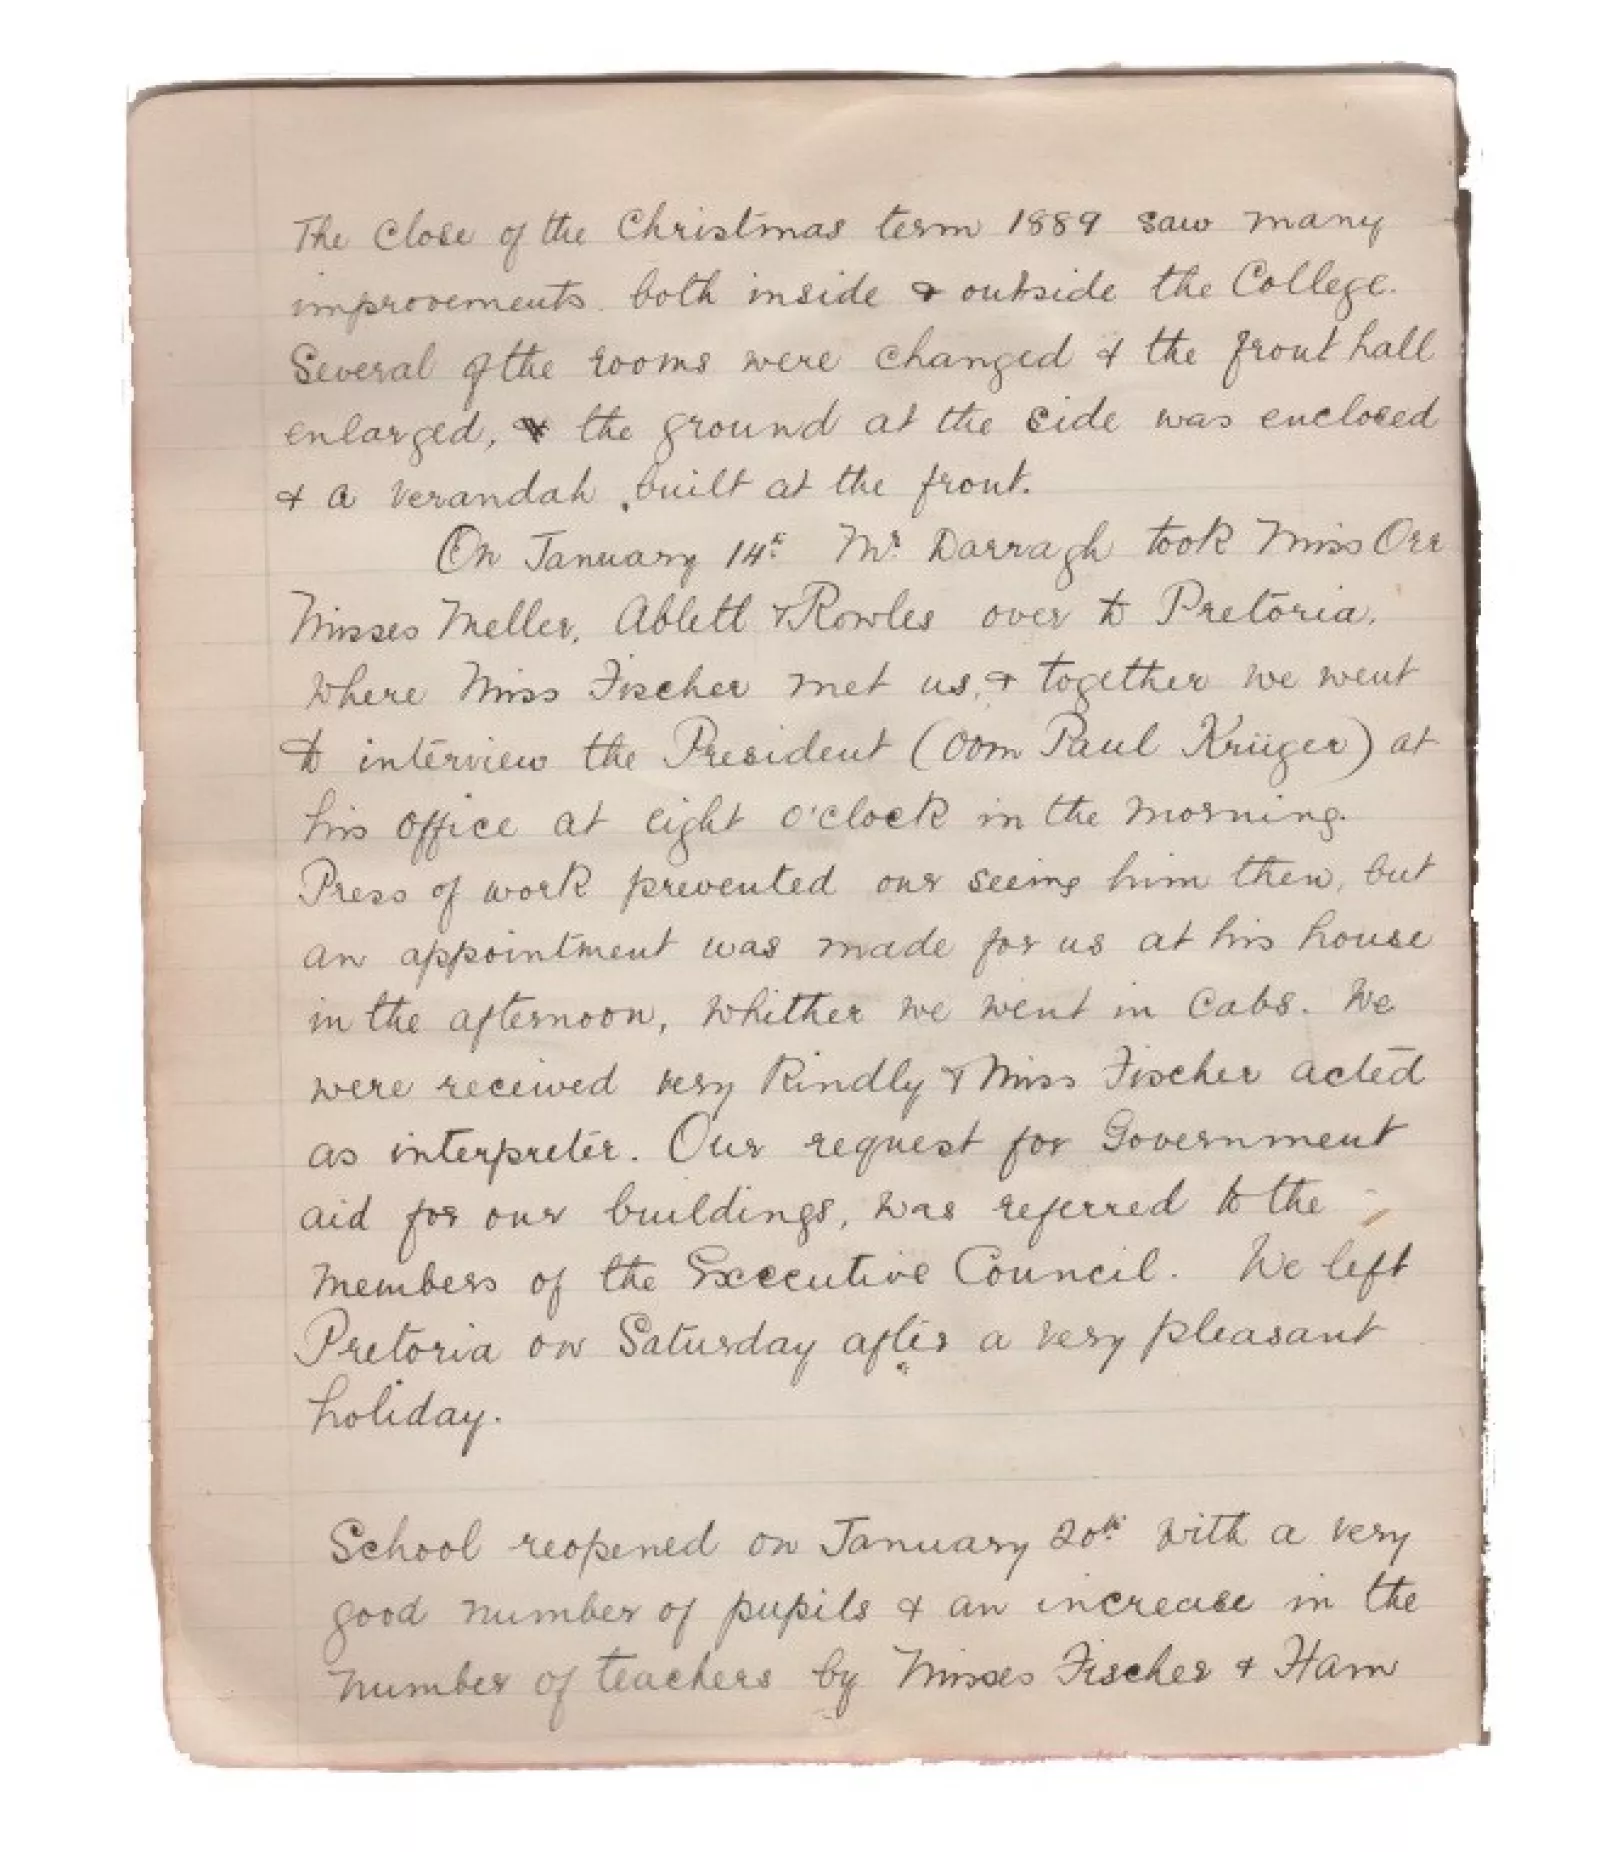 The Close of the Christmas term 1889 saw many
improvements both inside & outside the College.
Several of the rooms were changed & the front hall
enlarged, & the ground at the side was enclosed
& a verandah built at the front.
On January 14th. Mr. Darragh took Miss Orr
Misses Meller, Ablett & Rowles over to Pretoria,
where Miss Fischer met us, & together we went
to interview the President (Oom Paul Krüger) at
his office at eight o'clock in the morning.
Press of work prevented our seeing him then, but
an appointment was made for us at his house
in the afternoon, whither we went in Cabs. We
were received very kindly & Miss Fischer acted
as interpreter. Our request for Government
aid for our buildings, was referred to the
members of the Executive Council. We left
Pretoria on Saturday after a very pleasant
holiday.
School reopened on January 20th. with a very
good number of pupils & an increase in the
number of teachers by Misses Fischer & Ham